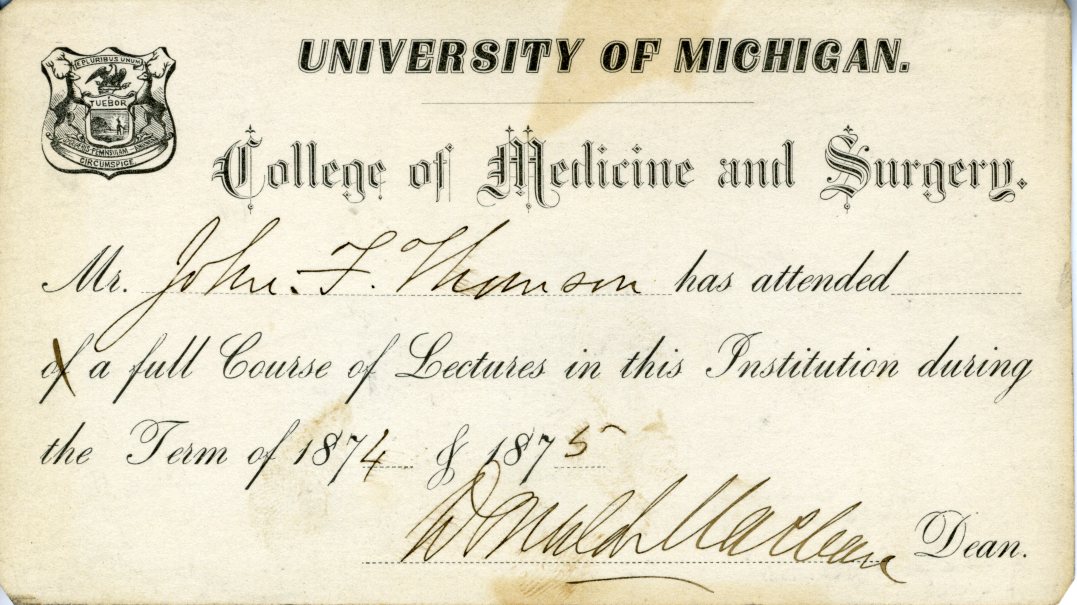 UNIVERSITY OF MICHIGAN.
E PLURIBUS UNUM
TUEBOR
CIRCUMSPICE
College of Medicine and Surgery.
Mr. John. F. Thomson has attended
of a full Course of Lectures in this Institution during
the Term of 1874 & 1875
Donald Maclean Dean.